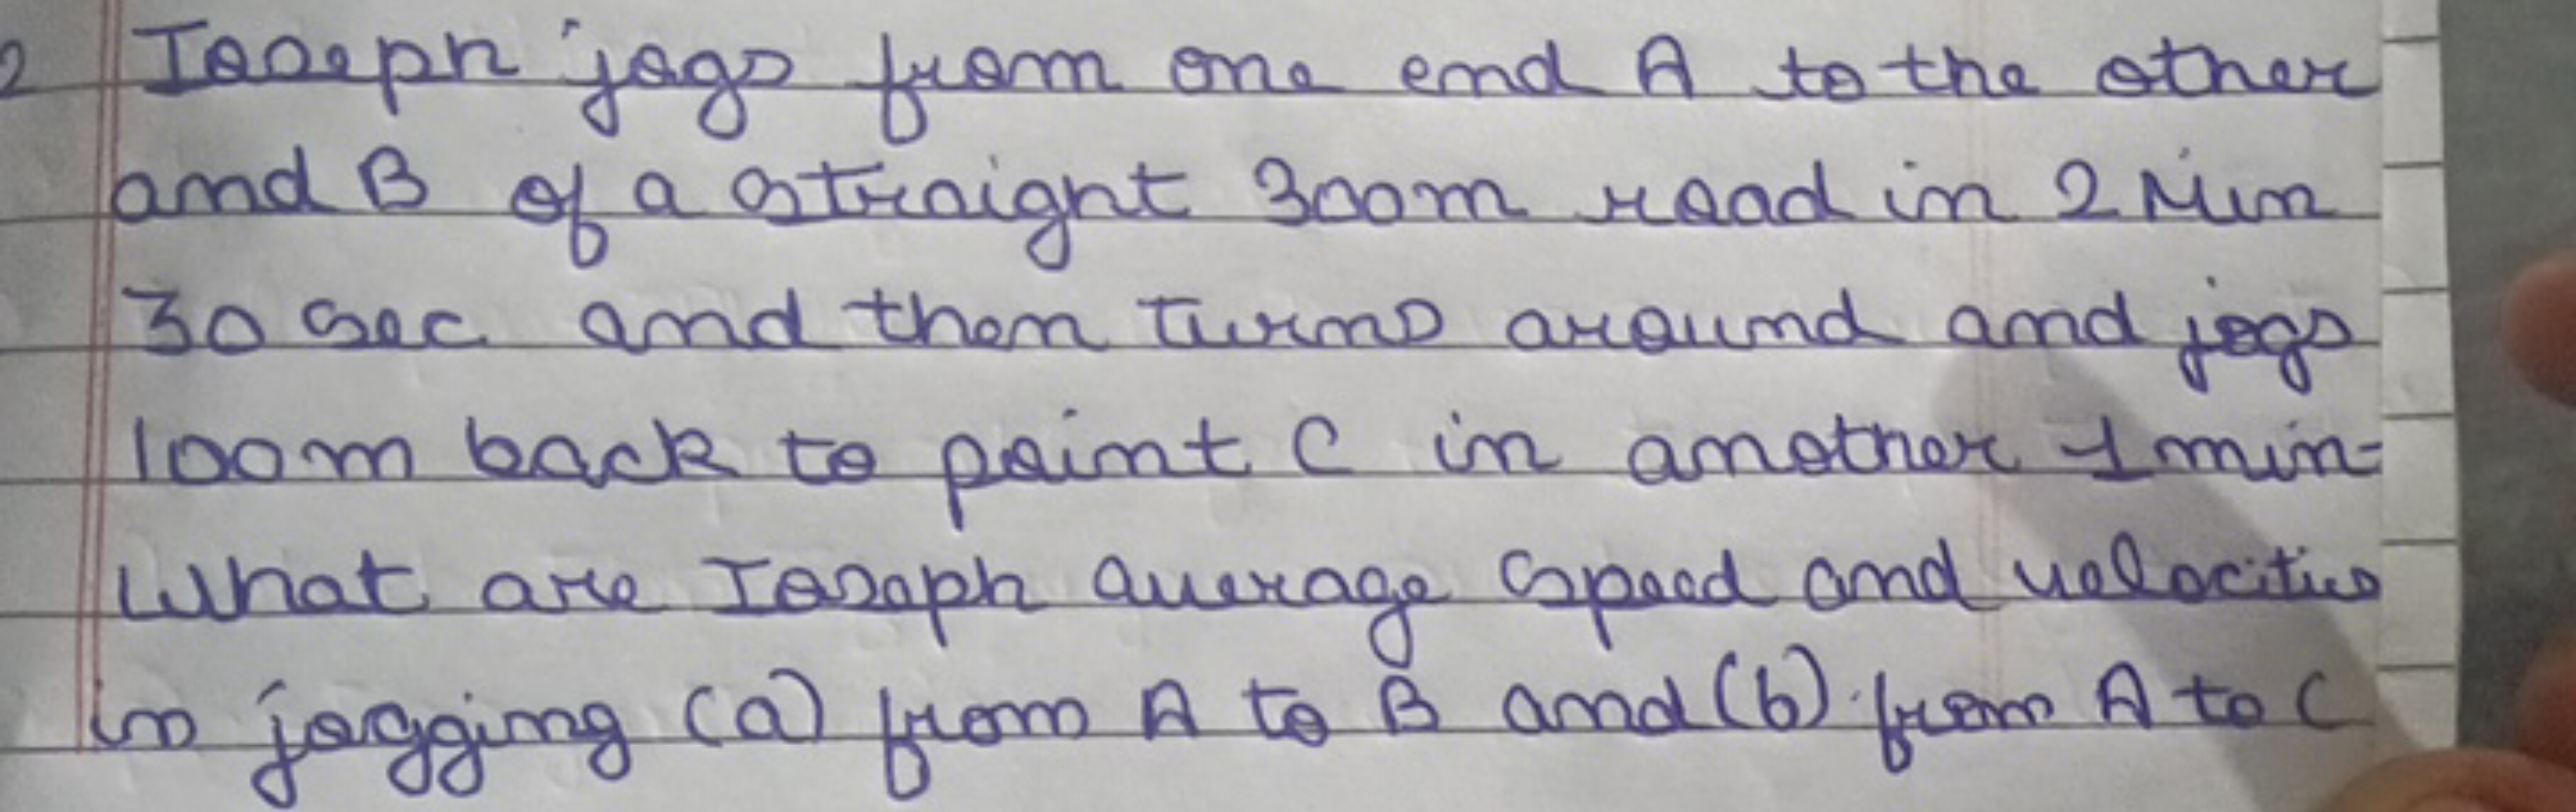 2 Ioseph jogs from one end A to the other
and B of a straight 300m road in 2 Min
30 sec and then turns around and jogs
100m back to point C in another 1 min-
What are Ioseph average speed and velocities
in jogging (a) from A to B and (b) from A to C